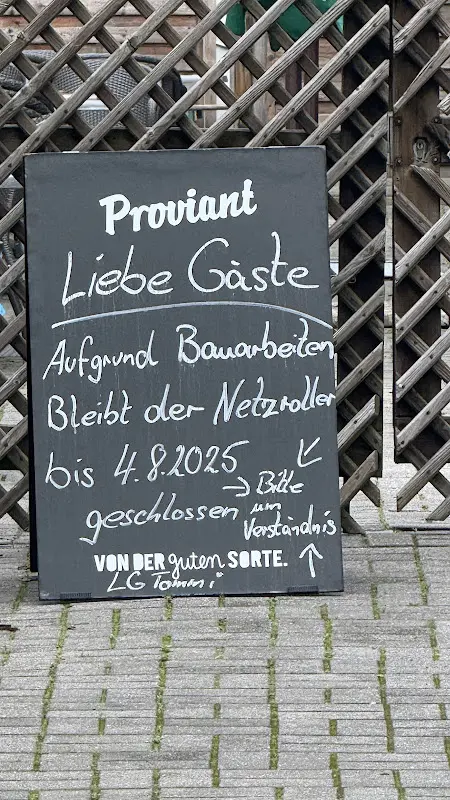 Proviant
Liebe Gäste
Aufgrund Bauarbeiten
Bleibt der Netzroller
bis 4.8.2025
geschlossen
→ Bitte
um
Verständnis
VON DER guten SORTE.
LG Tommi